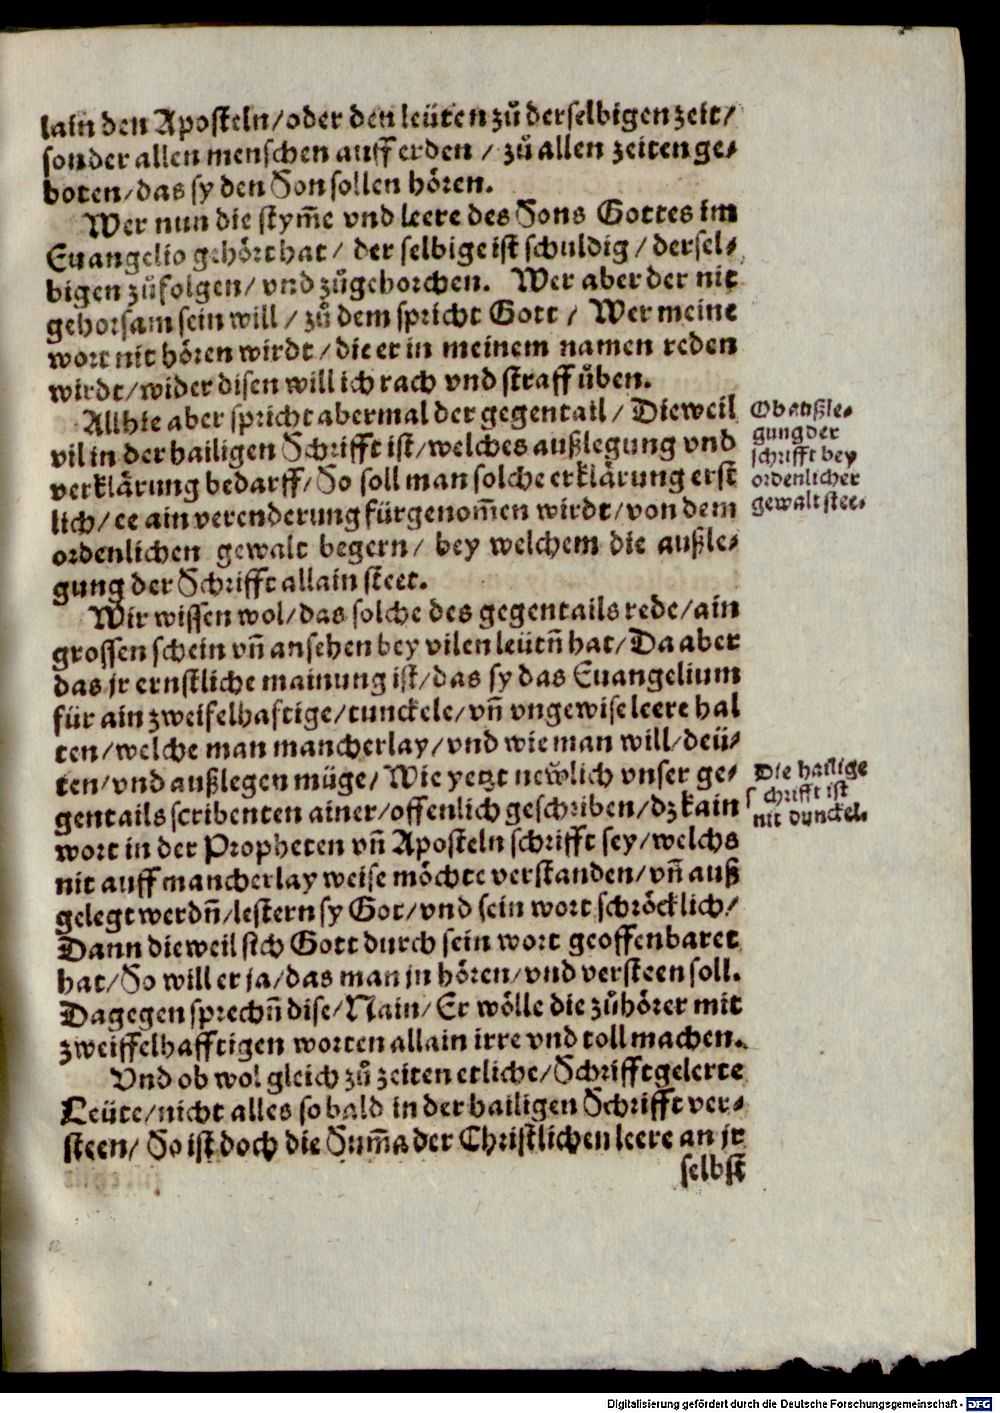 lain den Aposteln/oder den leüten zů derselbigen zeit/
sonder allen menschen auff erden / zů allen zeiten ge⸗
boten/das sy den Son sollen hören.
Wer nun die stym̃e vnd leere des Sons Gottes im
Euangelio gehört hat/ der selbige ist schuldig / dersel⸗
bigen zůfolgen/ vnd zůgehorchen. Wer aber der nit
gehorsam sein will / zů dem spricht Gott / Wer meine
wort nit hören wirdt / die er in meinem namen reden
wirdt/wider disen will ich rach vnd straff üben.
Allhie aber spricht abermal der gegentail / Dieweil
vil in der hailigen Schrifft ist/welches außlegung vnd
verklärung bedarff/So soll man solche erklärung erst
lich/ee ain verenderung fürgenom̃en wirdt/von dem
ordenlichen gewalt begern/ bey welchem die außle⸗
gung der Schrifft allain steet.
Ob außle⸗
gung der
schrifft bey
ordenlicher
gewalt stee.
Wir wissen wol/das solche des gegentails rede/ain
grossen schein vñ ansehen bey vilen leütñ hat/Da aber
das jr ernstliche mainung ist/das sy das Euangelium
für ain zweifelhaftige/tunckele/vñ vngewise leere hal
ten/welche man mancherlay/vnd wie man will/deü⸗
ten/vnd außlegen müge/Wie yetzt newlich vnser ge⸗
gentails scribenten ainer/offenlich geschriben/dz kain
wort in der Propheten vñ Aposteln schrifft sey/welchs
nit auff mancherlay weise möchte verstanden/vñ auß
gelegt werdñ/lestern sy Got/vnd sein wort schröcklich/
Dann dieweil sich Gott durch sein wort geoffenbaret
hat/So will er ja/das man jn hören/vnd versteen soll.
Dagegen sprechñ dise/Nain/Er wölle die zůhörer mit
zweiffelhafftigen worten allain irre vnd toll machen.
Die hailige
schrifft ist
nit dunckel.
Vnd ob wol gleich zů zeiten etliche/Schrifftgelerte
Leüte/nicht alles so bald in der hailigen Schrifft ver⸗
steen/ So ist doch die Sum̃a der Christlichen leere an jr
selbst
Digitalisierung gefördert durch die Deutsche Forschungsgemeinschaft - DFG